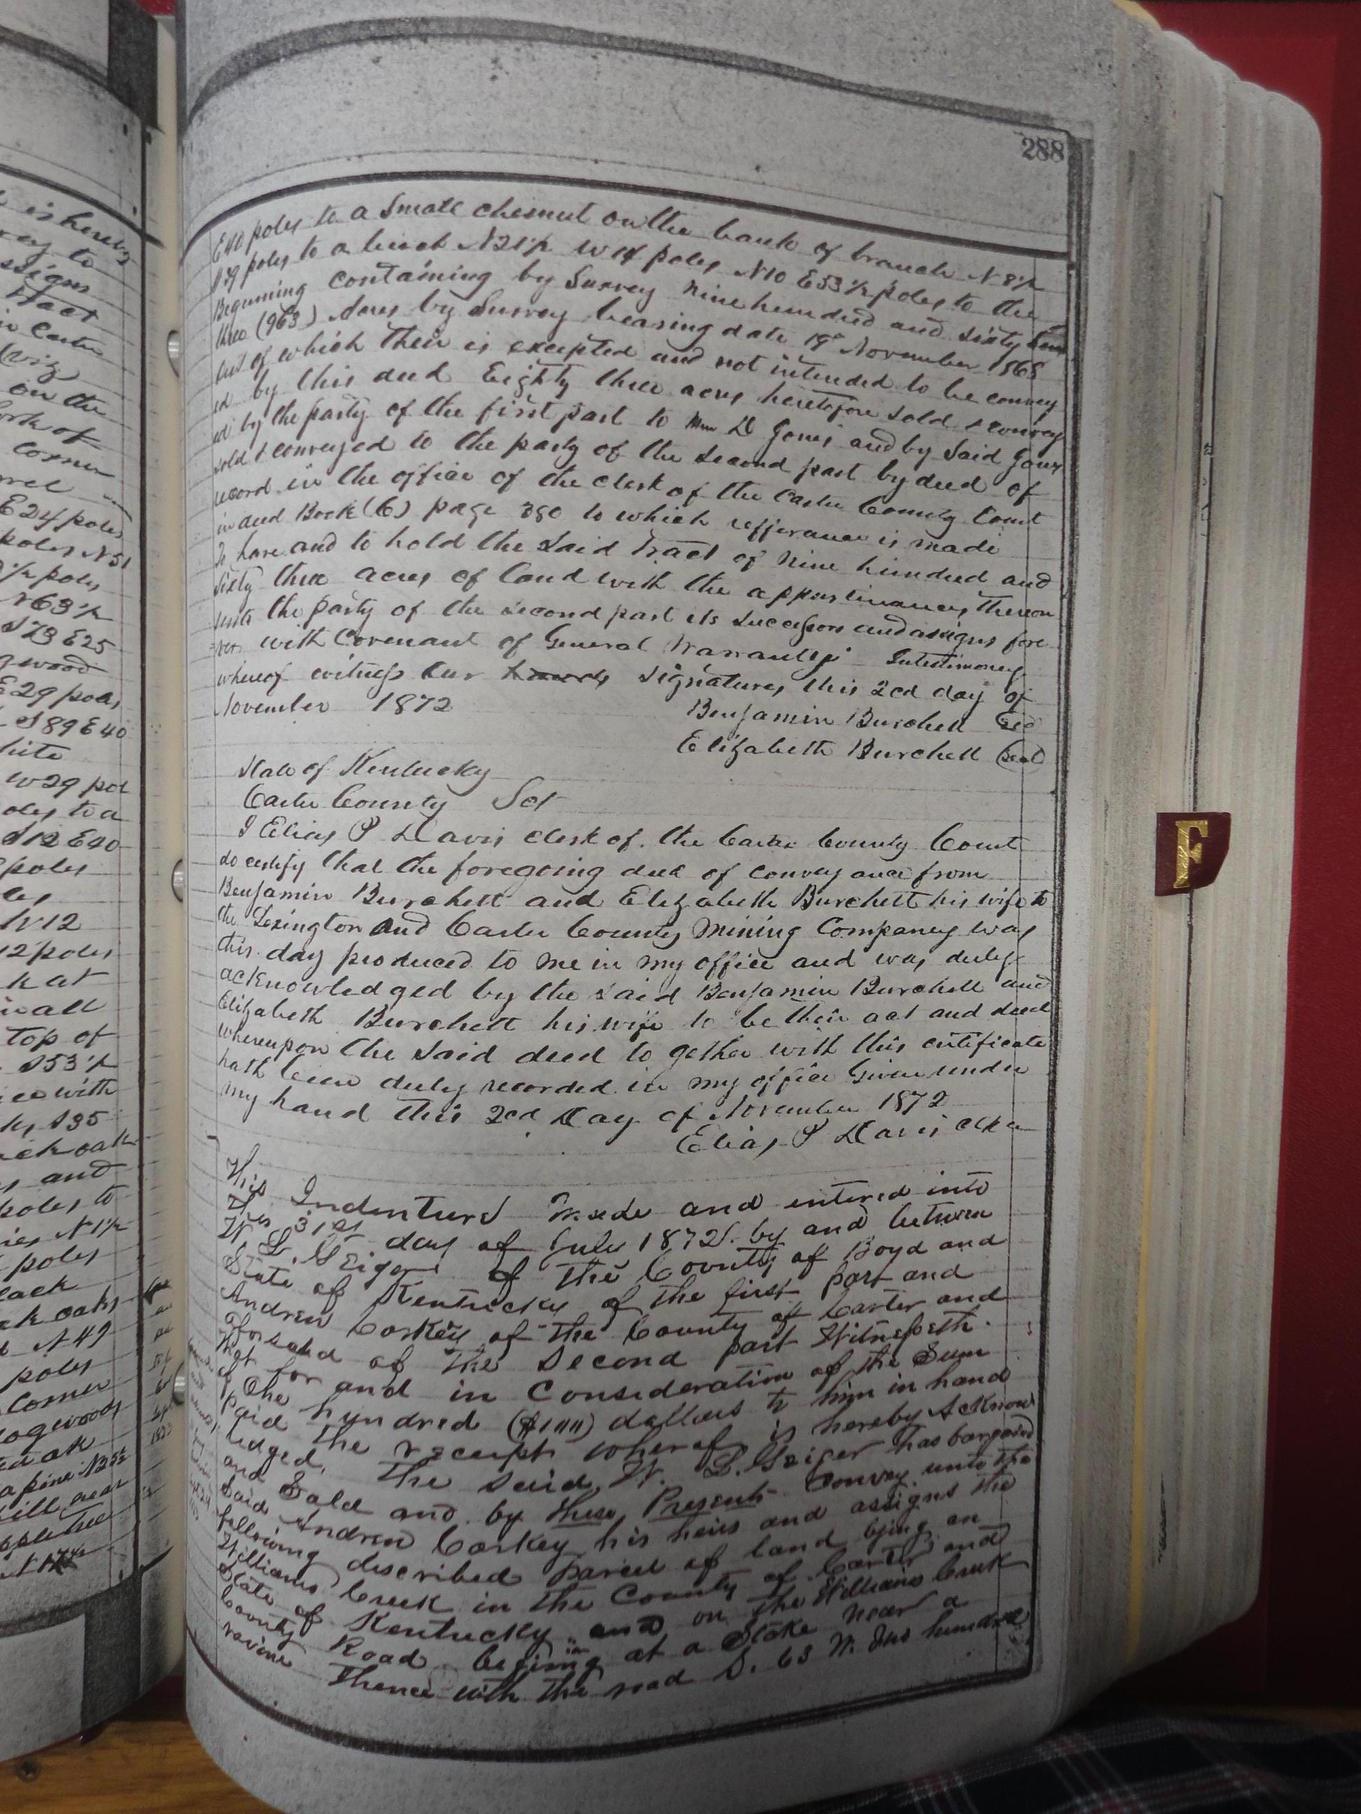 288
E 40 poles to a Small chesnut on the bank of branch N 8 1/2
poles to a birch N21 1/2 W 14 poles N10 E53 1/2 poles to the
Beginning containing by Survey Nine hundred and Sixty
three (963) Acres by Survey bearing date 19th November 1868
out of which their is excepted and not intended to be convey
ed by this deed Eighty three acres heretofore sold & convey
ed by the party of the first part to Wm D Jones and by Said Jones
sold & conveyed to the party of the second part by deed of
record in the office of the clerk of the Carter County Court
in deed Book (E) page to which refferance is made
To have and to hold the said Tract of Nine hundred and
Sixty three acres of land with the appurtinances thereon
unto the party of the second part its successors and assigns fore
ver with Covenant of General Warranty Intestimoney
whereof witness our signatures this 2cd day of
November 1872
Benjamin Burchett Seal
Elizabeth Burchett Seal
State of Kentucky
Carter County Sct
I Elias P Davis clerk of the Carter County Court
do certify that the foregoing deed of conveyance from
Benjamin Burchett and Elizabeth Burchett his wife to
the Lexington and Carter County Mining Company was
this day produced to me in my office and was duly
acknowledged by the said Benjamin Burchett and
Elizabeth Burchett his wife to be their act and deed
whereupon the said deed to gether with this certificate
hath been duly recorded in my office Given under
my hand this 2cd Day of November 1872
Elias P Davis Clk
This Indenture Made and entered into
This 31st day of July 1872 by and between
W. L. Geiger of the County of Boyd and
State of Kentucky of the first part and
Andrew Corkey of the County of Carter and
aforsaid of the second part Witnesseth
that for and in Consideration of the Sum
of One hundred ($100) dollars to him in hand
Paid the receipt whereof is hereby Acknow
ledged, The said W. L. Geiger has bargained
and Sold and by these Presents Convey unto the
Said Andrew Corkey his heirs and assigns the
following described parcel of land lying on
Williams Creek in the County of Carter and
State of Kentucky and on the Williams Creek
County Road begining at a Stake near a
ravine Thence with the road S. 63 W. two hundred
F
E24 poles
poles N51
N63 1/2
S73 E25
E29 poles
S89 E40
W29 pol
S12 E40
poles
N12
12 poles
top of
S53 1/2
with
S35
and
poles to
N1 1/2
poles
oaks
N49
poles
Corner